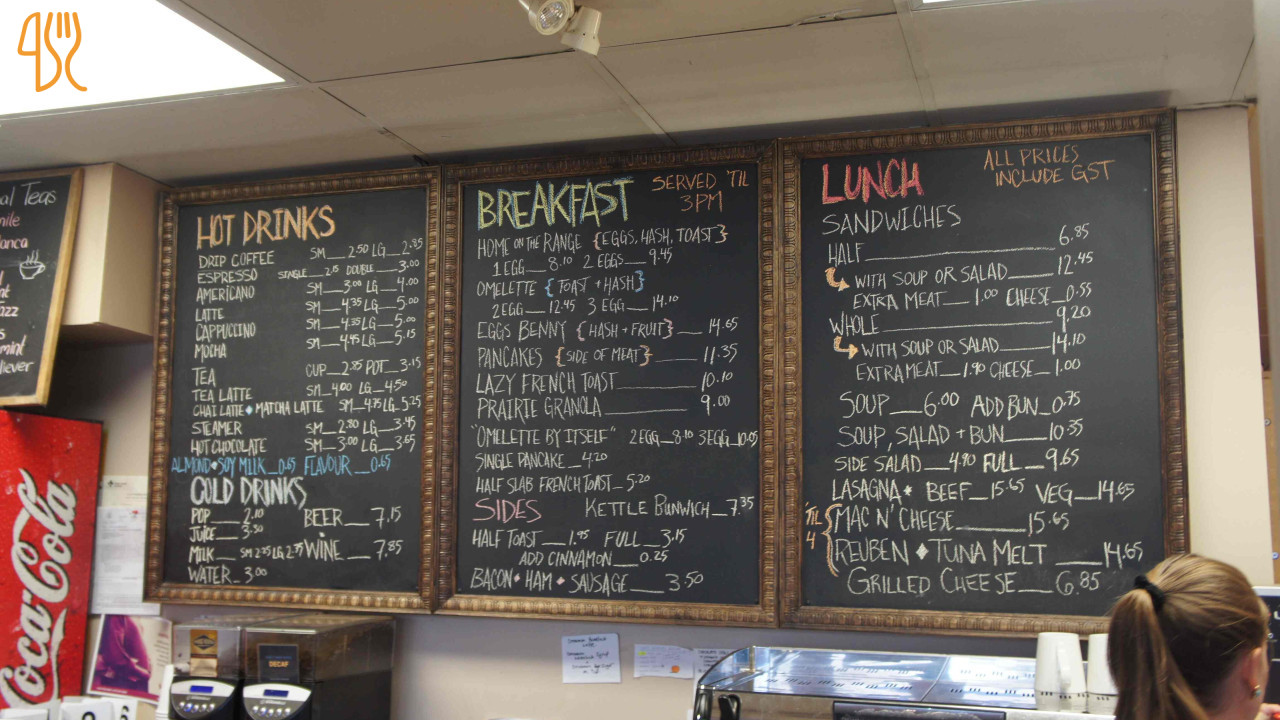 al Teas
mile
anca
nt
azz
s
mint
liever
HOT DRINKS
DRIP COFFEE SM__2.50 LG__2.85
ESPRESSO SINGLE__2.15 DOUBLE__3.00
AMERICANO SM__3.00 LG__4.00
LATTE SM__4.35 LG__5.00
CAPPUCCINO SM__4.35 LG__5.00
MOCHA SM__4.45 LG__5.15
TEA CUP__2.35 POT__3.15
TEA LATTE SM__4.00 LG__4.50
CHAI LATTE♦MATCHA LATTE SM__4.75 LG__5.25
STEAMER SM__2.80 LG__3.45
HOT CHOCOLATE SM__3.00 LG__3.65
ALMOND♦SOY MILK__0.65 FLAVOUR__0.65
COLD DRINKS
POP__2.10 BEER__7.15
JUICE__3.50
MILK__SM 2.35 LG 2.75 WINE__7.85
WATER_3.00
BREAKFAST SERVED 'TIL 3PM
HOME ON THE RANGE {EGGS, HASH, TOAST}
1 EGG__8.10 2 EGGS__9.45
OMELETTE {TOAST + HASH}
2 EGG__12.45 3 EGG__14.10
EGGS BENNY {HASH + FRUIT}__14.65
PANCAKES {SIDE OF MEAT}__11.35
LAZY FRENCH TOAST__10.10
PRAIRIE GRANOLA__9.00
"OMELETTE BY ITSELF" 2 EGG_8.10 3 EGG_10.05
SINGLE PANCAKE_4.20
HALF SLAB FRENCH TOAST_5.20
SIDES KETTLE BUNWICH__7.35
HALF TOAST__1.95 FULL__3.15
ADD CINNAMON__0.25
BACON♦HAM♦SAUSAGE__3.50
LUNCH ALL PRICES INCLUDE GST
SANDWICHES
HALF__6.85
WITH SOUP OR SALAD__12.45
EXTRA MEAT__1.00 CHEESE_0.55
WHOLE__9.20
WITH SOUP OR SALAD__14.10
EXTRA MEAT__1.90 CHEESE__1.00
SOUP__6.00 ADD BUN_0.75
SOUP, SALAD + BUN__10.35
SIDE SALAD__4.90 FULL__9.65
LASAGNA♦ BEEF_15.65 VEG__14.65
'TIL 4 {MAC N' CHEESE__15.65
REUBEN ♦ TUNA MELT__14.65
GRILLED CHEESE__6.85
Coca-Cola
DECAF